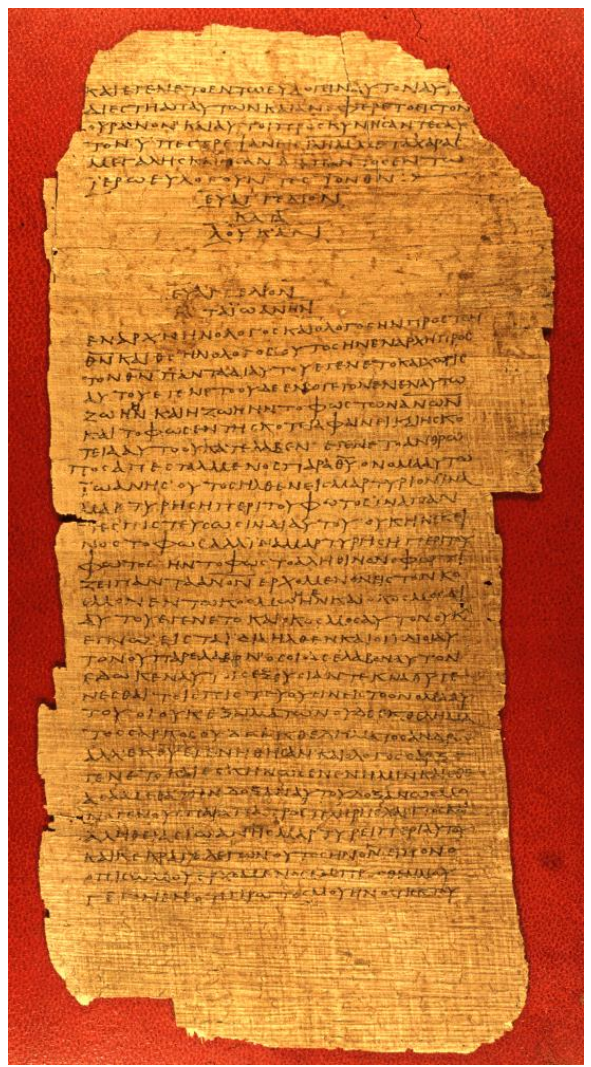 ΚΑΙ ΕΓΕΝΕΤΟ ΕΝ ΤΩ ΕΥΛΟΓΕΙΝ ΑΥΤΟΝ ΑΥ
ΔΙΕΣΤΗ ΑΠ ΑΥΤΩΝ ΚΑΙ ΑΝΕΦΕΡΕΤΟ ΕΙΣ ΤΟΝ
ΟΥΡΑΝΟΝ ΚΑΙ ΑΥΤΟΙ ΠΡΟΣΚΥΝΗΣΑΝΤΕΣ ΑΥ
ΤΟΝ ΥΠΕΣΤΡΕΨΑΝ ΕΙΣ ΜΕΤΑ ΧΑΡΑΣ
ΜΕΓΑΛΗΣ ΚΑΙ ΗΣΑΝ ΔΙΑ ΠΑΝΤΟΣ ΕΝ ΤΩ
ΙΕΡΩ ΕΥΛΟΓΟΥΝΤΕΣ ΤΟΝ ΘΝ
ΕΥΑΓΓΕΛΙΟΝ
ΚΑΤΑ
ΛΟΥΚΑΝ
ΕΥΑΓΓΕΛΙΟΝ
ΚΑΤΑ ΪΩΑΝΗΝ
ΕΝ ΑΡΧΗ ΗΝ Ο ΛΟΓΟΣ ΚΑΙ Ο ΛΟΓΟΣ ΗΝ ΠΡΟΣ ΤΟΝ
ΘΝ ΚΑΙ ΘΣ ΗΝ Ο ΛΟΓΟΣ ΟΥΤΟΣ ΗΝ ΕΝ ΑΡΧΗ ΠΡΟΣ
ΤΟΝ ΘΝ ΠΑΝΤΑ ΔΙ ΑΥΤΟΥ ΕΓΕΝΕΤΟ ΚΑΙ ΧΩΡΙΣ
ΑΥΤΟΥ ΕΓΕΝΕΤΟ ΟΥΔΕ ΕΝ Ο ΓΕΓΟΝΕΝ ΕΝ ΑΥΤΩ
ΖΩΗ ΗΝ ΚΑΙ Η ΖΩΗ ΗΝ ΤΟ ΦΩΣ ΤΩΝ ΑΝΩΝ
ΚΑΙ ΤΟ ΦΩΣ ΕΝ ΤΗ ΣΚΟΤΕΙΑ ΦΑΙΝΕΙ ΚΑΙ Η ΣΚΟ
ΤΕΙΑ ΑΥΤΟ ΟΥ ΚΑΤΕΛΑΒΕΝ ΕΓΕΝΕΤΟ ΑΝΘΡΩ
ΠΟΣ ΑΠΕΣΤΑΛΜΕΝΟΣ ΠΑΡΑ ΘΥ ΟΝΟΜΑ ΑΥΤΩ
ΪΩΑΝΗΣ ΟΥΤΟΣ ΗΛΘΕΝ ΕΙΣ ΜΑΡΤΥΡΙΟΝ ΙΝΑ
ΜΑΡΤΥΡΗΣΗ ΠΕΡΙ ΤΟΥ ΦΩΤΟΣ ΙΝΑ ΠΑΝ
ΤΕΣ ΠΙΣΤΕΥΣΩΣΙΝ ΔΙ ΑΥΤΟΥ ΟΥΚ ΗΝ ΕΚΕΙ
ΝΟΣ ΤΟ ΦΩΣ ΑΛΛ ΙΝΑ ΜΑΡΤΥΡΗΣΗ ΠΕΡΙ ΤΟΥ
ΦΩΤΟΣ ΗΝ ΤΟ ΦΩΣ ΤΟ ΑΛΗΘΙΝΟΝ Ο ΦΩΤΙ
ΖΕΙ ΠΑΝΤΑ ΑΝΟΝ ΕΡΧΟΜΕΝΟΝ ΕΙΣ ΤΟΝ ΚΟ
ΣΜΟΝ ΕΝ ΤΩ ΚΟΣΜΩ ΗΝ ΚΑΙ Ο ΚΟΣΜΟΣ ΔΙ
ΑΥΤΟΥ ΕΓΕΝΕΤΟ ΚΑΙ Ο ΚΟΣΜΟΣ ΑΥΤΟΝ ΟΥΚ
ΕΓΝΩ ΕΙΣ ΤΑ ΙΔΙΑ ΗΛΘΕΝ ΚΑΙ ΟΙ ΙΔΙΟΙ ΑΥ
ΤΟΝ ΟΥ ΠΑΡΕΛΑΒΟΝ ΟΣΟΙ ΔΕ ΕΛΑΒΟΝ ΑΥΤΟΝ
ΕΔΩΚΕΝ ΑΥΤΟΙΣ ΕΞΟΥΣΙΑΝ ΤΕΚΝΑ ΘΥ ΓΕ
ΝΕΣΘΑΙ ΤΟΙΣ ΠΙΣΤΕΥΟΥΣΙΝ ΕΙΣ ΤΟ ΟΝΟΜΑ ΑΥ
ΤΟΥ ΟΙ ΟΥΚ ΕΞ ΑΙΜΑΤΩΝ ΟΥΔΕ ΕΚ ΘΕΛΗΜΑ
ΤΟΣ ΣΑΡΚΟΣ ΟΥΔΕ ΕΚ ΘΕΛΗΜΑΤΟΣ ΑΝΔΡΟΣ
ΑΛΛ ΕΚ ΘΥ ΕΓΕΝΗΘΗΣΑΝ ΚΑΙ Ο ΛΟΓΟΣ ΣΑΡΞ Ε
ΓΕΝΕΤΟ ΚΑΙ ΕΣΚΗΝΩΣΕΝ ΕΝ ΗΜΙΝ ΚΑΙ ΕΘΕ
ΑΣΑΜΕΘΑ ΤΗΝ ΔΟΞΑΝ ΑΥΤΟΥ ΔΟΞΑΝ ΩΣ ΜΟ
ΝΟΓΕΝΟΥΣ ΠΑΡΑ ΠΑΤΡΟΣ ΠΛΗΡΗΣ ΧΑΡΙΤΟΣ ΚΑΙ
ΑΛΗΘΕΙΑΣ ΙΩΑΝΗΣ ΜΑΡΤΥΡΕΙ ΠΕΡΙ ΑΥΤΟΥ
ΚΑΙ ΚΕΚΡΑΓΕ ΛΕΓΩΝ ΟΥΤΟΣ ΗΝ ΟΝ ΕΙΠΟΝ Ο
ΟΠΙΣΩ ΜΟΥ ΕΡΧΟΜΕΝΟΣ ΕΜΠΡΟΣΘΕΝ ΜΟΥ
ΓΕΓΟΝΕΝ ΟΤΙ ΠΡΩΤΟΣ ΜΟΥ ΗΝ ΟΤΙ ΕΚ ΤΟΥ